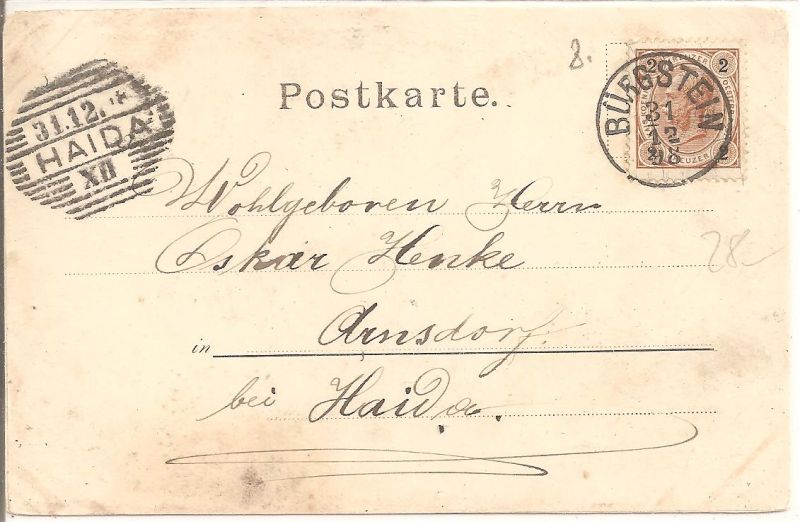 8.
2 KREUZER 2
BÜRGSTEIN
31
12
98
2 KREUZER 2
Postkarte.
31.12.
HAIDA
XII
Wohlgeboren Herrn
Oskar Henke
28–
in Arnsdorf.
bei Haida.